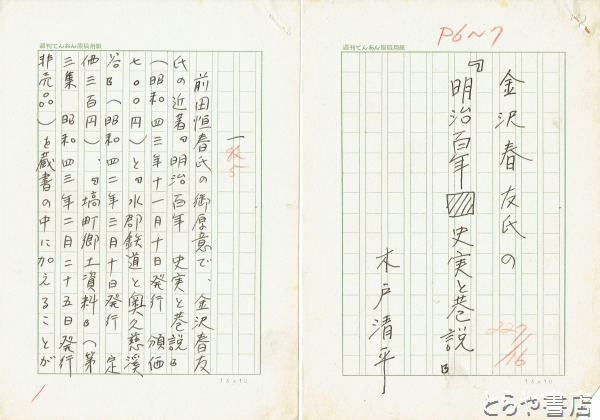 P6〜7
週刊てんおん原稿用紙
金沢春友氏の
『明治百年 史実と巷説』
木戸清平
227/16
13×10
週刊てんおん原稿用紙
一
前田恒春氏の御厚意で、金沢春友
氏の近著『明治百年 史実と巷説』
(昭和四三年十一月十日発行 頒価
七〇〇円)と『水郡鉄道と奥久慈渓
谷』(昭和四二年三月十日発行 定
価三百円)、『塙町郷土資料』(第
三集 昭和四三年二月二十五日発行
非売品)を蔵書の中に加えることが
1
13×10
とらや書店